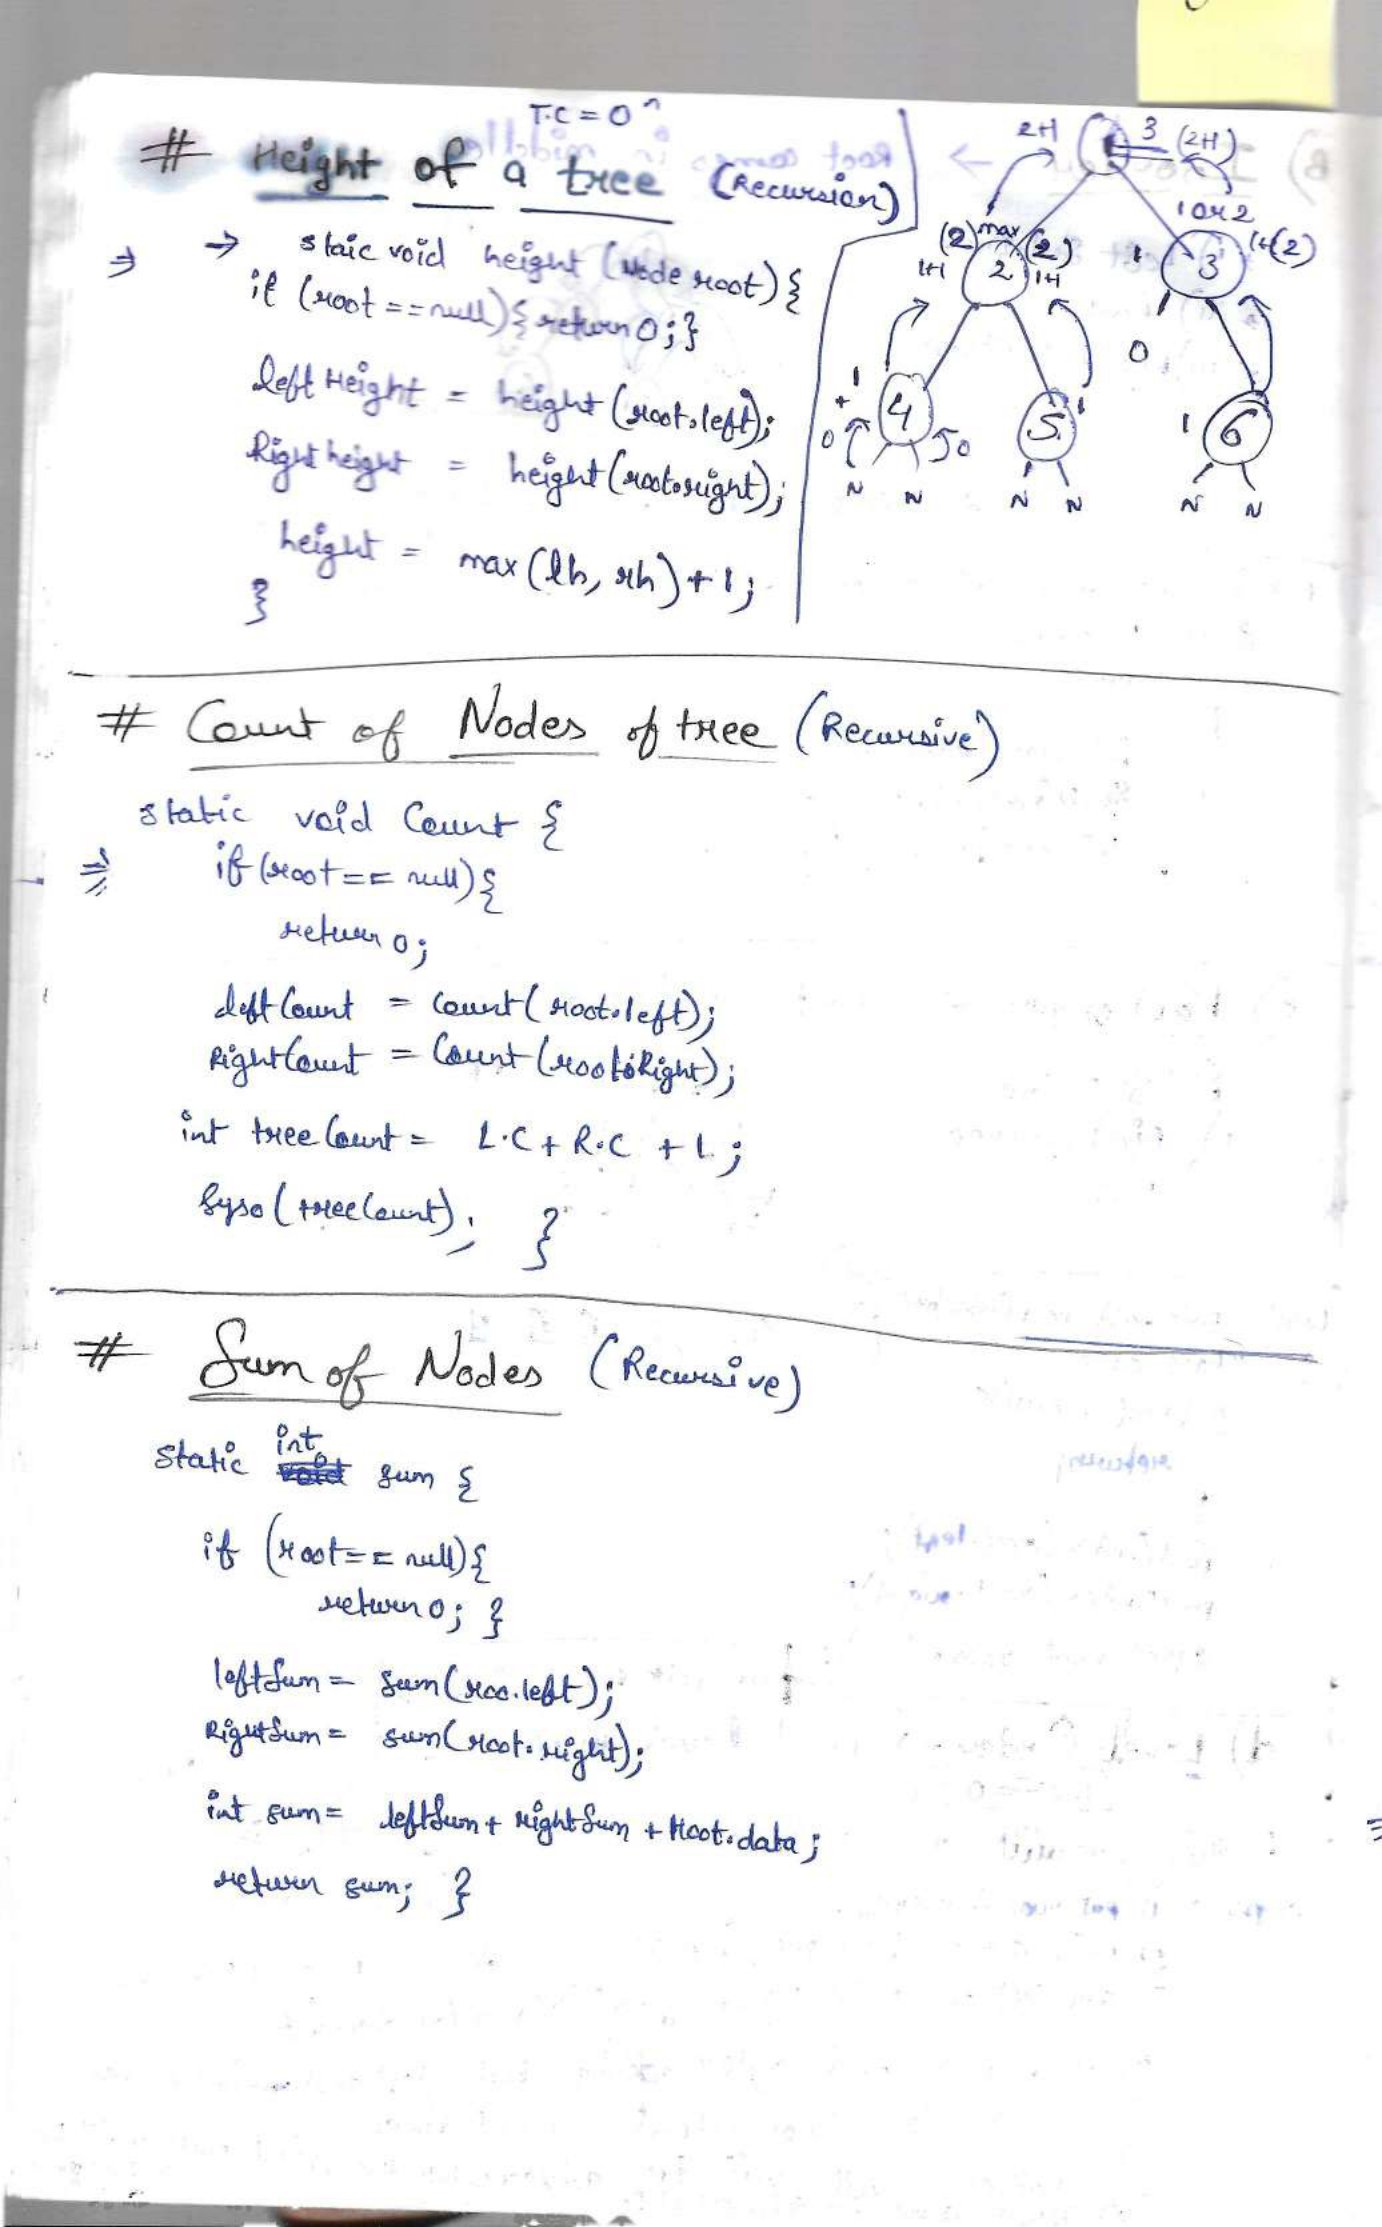 T.C = O^n
# Height of a tree (Recursion)
⇒ → staic void height (Node root) {
if (root == null) { return 0; }
left Height = height (root.left);
Right height = height (root.right);
height = max (lh, rh) + 1;
}
2+1 1 3 (2+1)
1 or 2
(2) max (2) 1 1+(2)
1+1 2 1+1 3
0
1
+ 4 5 1 1 6
0 0
N N N N N N
# Count of Nodes of tree (Recursive)
static void Count {
⇒ if (root == null) {
return 0;
left Count = Count (root.left);
Right Count = Count (root.Right);
int tree Count = L.C + R.C + 1;
Syso (tree Count); }
# Sum of Nodes (Recursive)
int
static void sum {
if (root == null) {
return 0; }
left Sum = Sum (roo.left);
Right Sum = sum (root.right);
int sum = left Sum + right Sum + root.data;
return sum; }